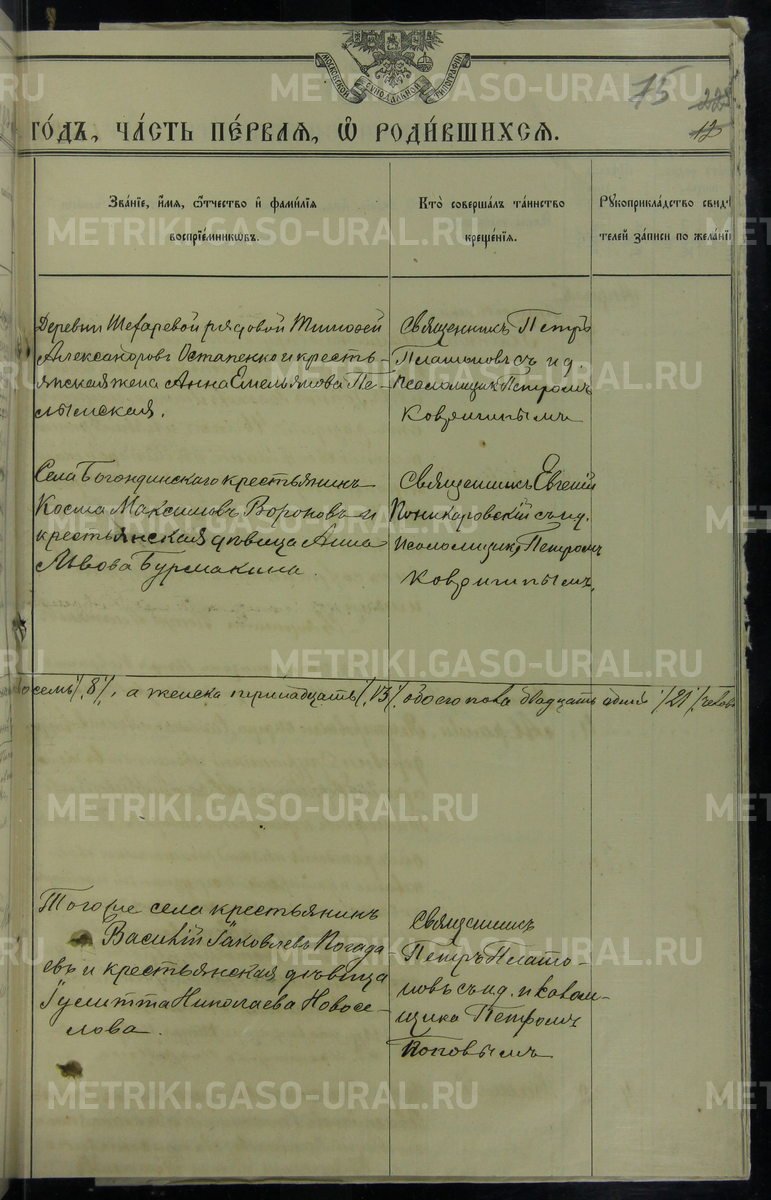 МОСКОВСКОЙ СѴНОДАЛЬНОЙ ТИПОГРАФІИ
75
12
ГО́ДЪ, ЧА́СТЬ ПЕ́РВАЯ, Ѽ РОДИ́ВШИХСЯ.
Зва́нїе, и҆́мя, ѻ҆́тчество и҆ фами́лїѧ
воспрїе́мникѡвъ.
Кто̀ соверша́лъ та́инство
креще́нїя.
Рꙋкоприкла́дство свид
телей за́писи по жела́нїю
Деревни рядовой Тимофей
Александровъ Остапенко и кресть-
янская жена Анна Емельянова Пе-
лымская.
Священникъ Петръ
Платоновъ съ и.д.
Псаломщик. Петромъ
Ковригинымъ
Села Богандинскаго крестьянинъ
Косма Максимовъ Вороновъ и
крестьянская дѣвица Анна
Львова Бурмакина.
Священникъ Евгеній
Поникаровскій съ и.д.
Псаломщик. Петромъ
Ковригинымъ.
восемь /8/, а женска тринадцать /13/ обоего пола двадцать одинъ /21/ челов
Того же села крестьянинъ
Василій Іаковлевъ Погада-
евъ и крестьянская дѣвица
Іулитта Николаева Новосе-
лова.
Священникъ
Петръ Плато-
новъ съ и.д. псалом-
щика Петромъ
Поповымъ
METRIKI.GASO-URAL.RU